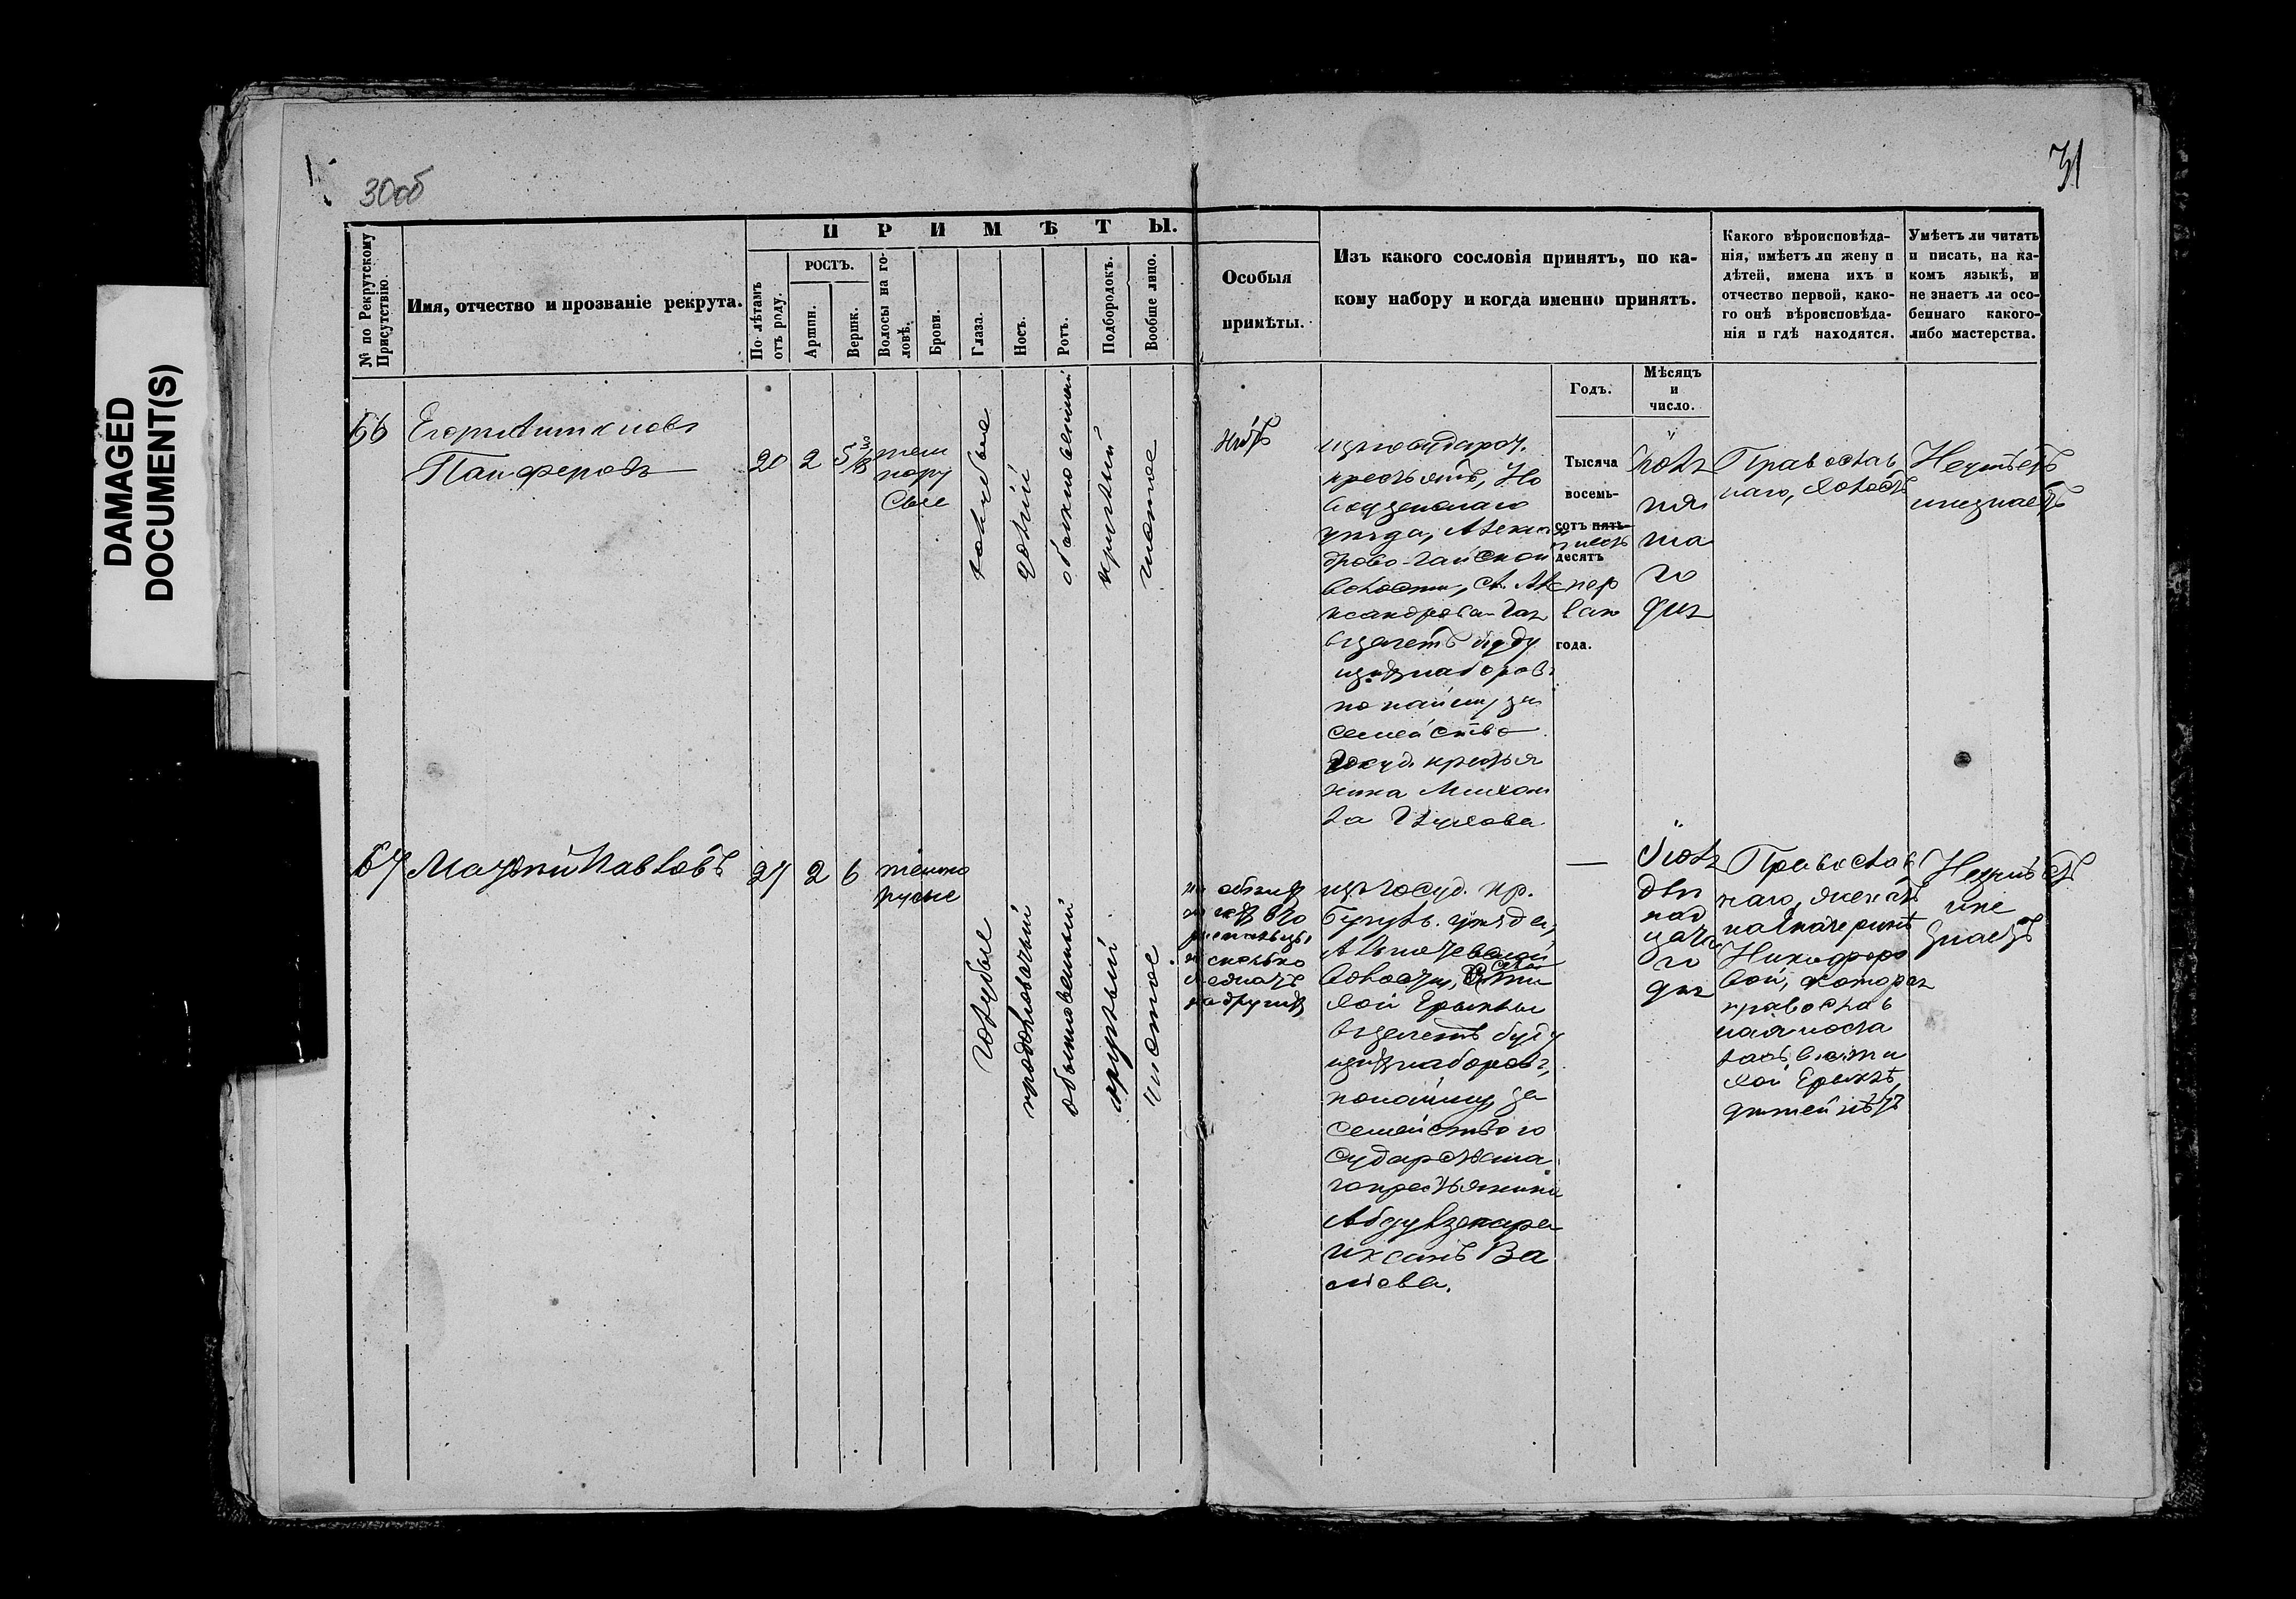 DAMAGED
DOCUMENT(S)
30об
31
№ по Рекрутскому Присутствію.
Имя, отчество и прозваніе рекрута.
ПРИМѢТЫ.
По лѣтамъ отъ роду.
РОСТЪ.
Аршин.
Вершк.
Волосы на головѣ.
Брови.
Глаза.
Носъ.
Ротъ.
Подбородокъ.
Вообще лицо.
Особыя
примѣты.
Изъ какого сословія принятъ, по ка-
кому набору и когда именно принятъ.
Какого вѣроисповѣда-
нія, имѣетъ ли жену и
дѣтей, имена ихъ и
отчество первой, како-
го онѣ вѣроисповѣда-
нія и гдѣ находятся.
Умѣетъ ли читать
и писать, на ка-
комъ языкѣ, и
не знаетъ ли осо-
беннаго какого-
либо мастерства.
Годъ.
Мѣсяцъ
и
число.
66
Егоръ
Панферовъ
20
2
5 3/8
темно
ру
сые
голубые
обыкновенный
круглый
чистое
нѣтъ
крестьянъ, Но
воузенскаго
уѣзда, Алекса
дрово-Гайской
волости, сл. Але
ксандрова-Гая
взачетъ буду
щихъ наборовъ
по найму за
семейство
госуд. крестья
нина Михаи
ла Глухова
Тысяча
восемь-
сотъ пять
шесть
десять
пер
ваго
года.
Іюля
пя
та
го
дня
Православ
наго, холостъ
Неумѣетъ
инезнаетъ
67
Матвѣй Павловъ
27
2
6
темно
русые
голубые
продолговатый
обыкновенный
круглый
чистое
на обѣихъ
на другихъ
изъ госуд. кр.
Бугульм. уѣзда,
волости, села
взачетъ буду
щихъ наборовъ,
понайму за
семейство го
сударствена
го крестьянина
Ва
лiева.
—
Іюля
двѣ
над
цата
го
дня
Православ
наго, женатъ
на Катеринѣ
Никифоро
вой, которая
православ
ная
дѣтей нѣтъ
Неумѣетъ
ине
знаетъ